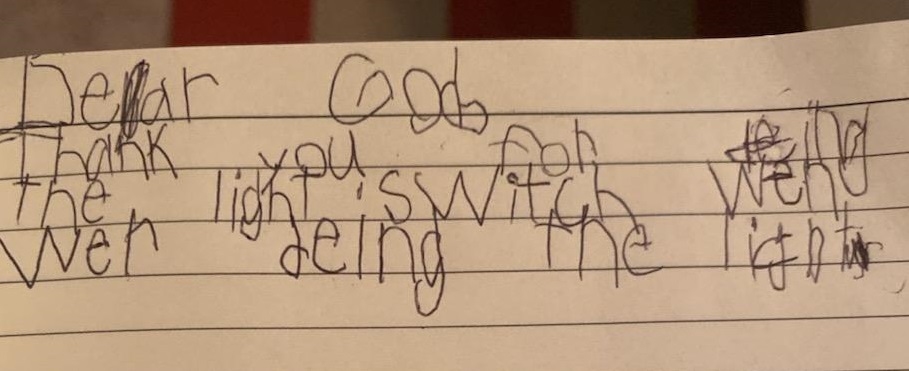 Dear God
Thank you for
the light iswitch
Wen deing the light